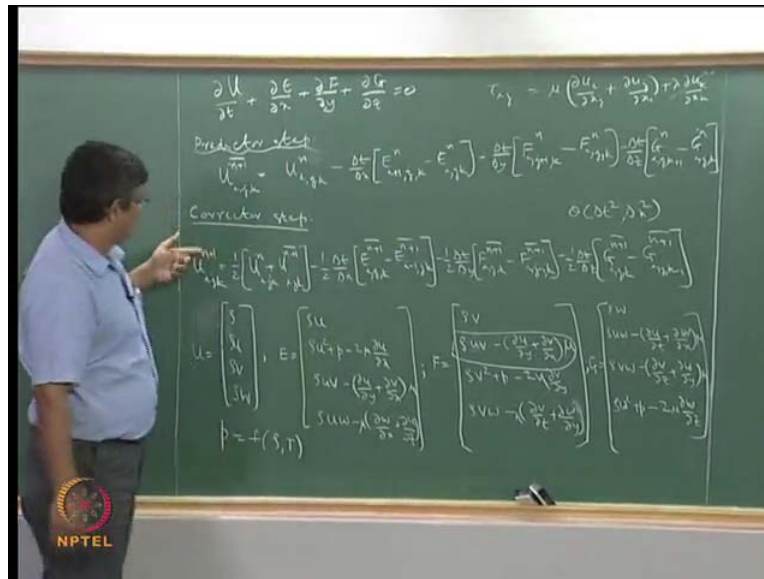 ∂U/∂t + ∂E/∂x + ∂F/∂y + ∂G/∂z = 0
τ_ij = μ(∂u_i/∂x_j + ∂u_j/∂x_i) + λ ∂u_k/∂x_k
Predictor step
U^{\overline{n+1}}_{i,j,k} = U^n_{i,j,k} − Δt/Δx [E^n_{i+1,j,k} − E^n_{i,j,k}] − Δt/Δy [F^n_{i,j+1,k} − F^n_{i,j,k}] − Δt/Δz [G^n_{i,j,k+1} − G^n_{i,j,k}]
Corrector step.
O(Δt², Δx²)
U^{n+1}_{i,j,k} = 1/2 [U^n_{i,j,k} + U^{\overline{n+1}}_{i,j,k}] − 1/2 Δt/Δx [E^{\overline{n+1}}_{i,j,k} − E^{\overline{n+1}}_{i-1,j,k}] − 1/2 Δt/Δy [F^{\overline{n+1}}_{i,j,k} − F^{\overline{n+1}}_{i,j-1,k}] − 1/2 Δt/Δz [G^{\overline{n+1}}_{i,j,k} − G^{\overline{n+1}}_{i,j,k-1}]
U = [ρ, ρu, ρv, ρw]
E = [ρu, ρu² + p − 2μ ∂u/∂x, ρuv − (∂u/∂y + ∂v/∂x)μ, ρuw − μ(∂w/∂x + ∂u/∂z)]
F = [ρv, ρuv − (∂u/∂y + ∂v/∂x)μ, ρv² + p − 2μ ∂v/∂y, ρvw − μ(∂v/∂z + ∂w/∂y)]
G = [ρw, ρuw − (∂u/∂z + ∂w/∂x)μ, ρvw − (∂v/∂z + ∂w/∂y)μ, ρw² + p − 2μ ∂w/∂z]
p = f(ρ, T)
NPTEL